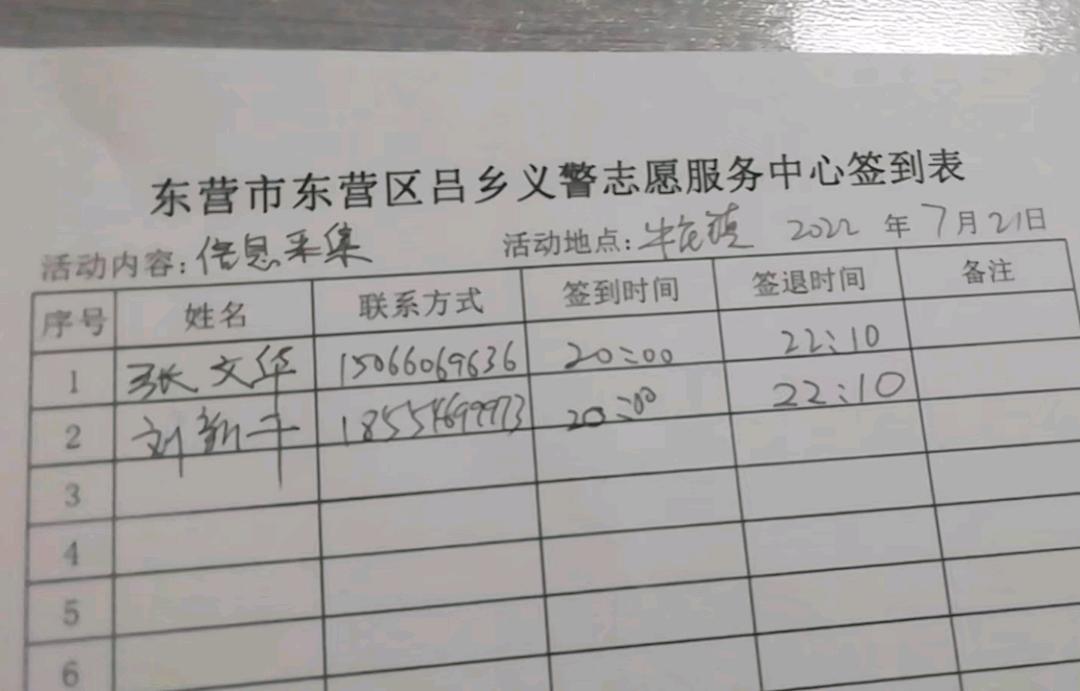 东营市东营区吕乡义警志愿服务中心签到表
活动内容:信息采集 活动地点:牛庄镇 2022 年 7月21日
序号 姓名 联系方式 签到时间 签退时间 备注
1 张文华 15066069636 20:00 22:10
2 刘新平 18554699973 20:00 22:10
3
4
5
6